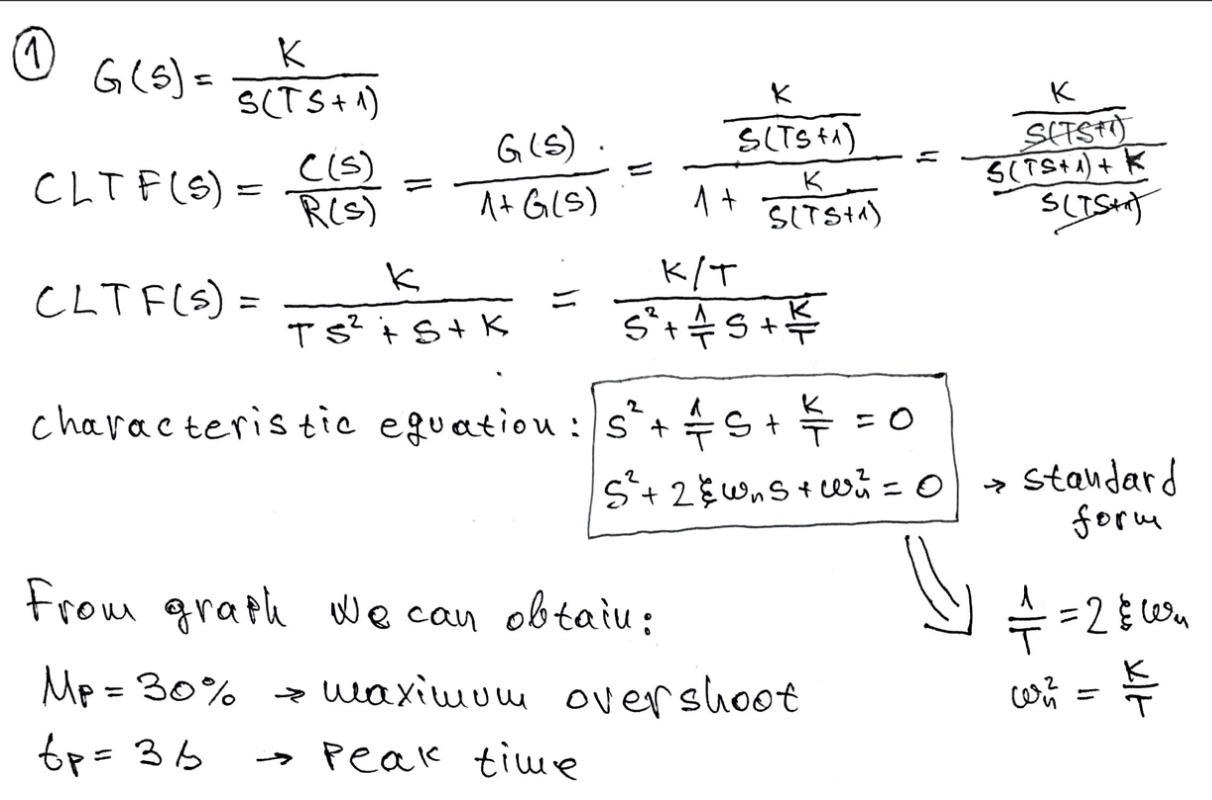 ① G(S) = K / S(TS+1)
CLTF(S) = C(S) / R(S) = G(S) / 1+G(S) = (K / S(TS+1)) / (1 + K / S(TS+1)) = (K / S(TS+1)) / ((S(TS+1)+K) / S(TS+1))
CLTF(S) = K / TS²+S+K = K/T / S²+1/T S+K/T
characteristic equation: S² + 1/T S + K/T = 0
S² + 2ξωnS + ωn² = 0 → standard form
From graph We can obtain:
1/T = 2ξωn
Mp = 30% → maximum overshoot
ωn² = K/T
tp = 3s → Peak time